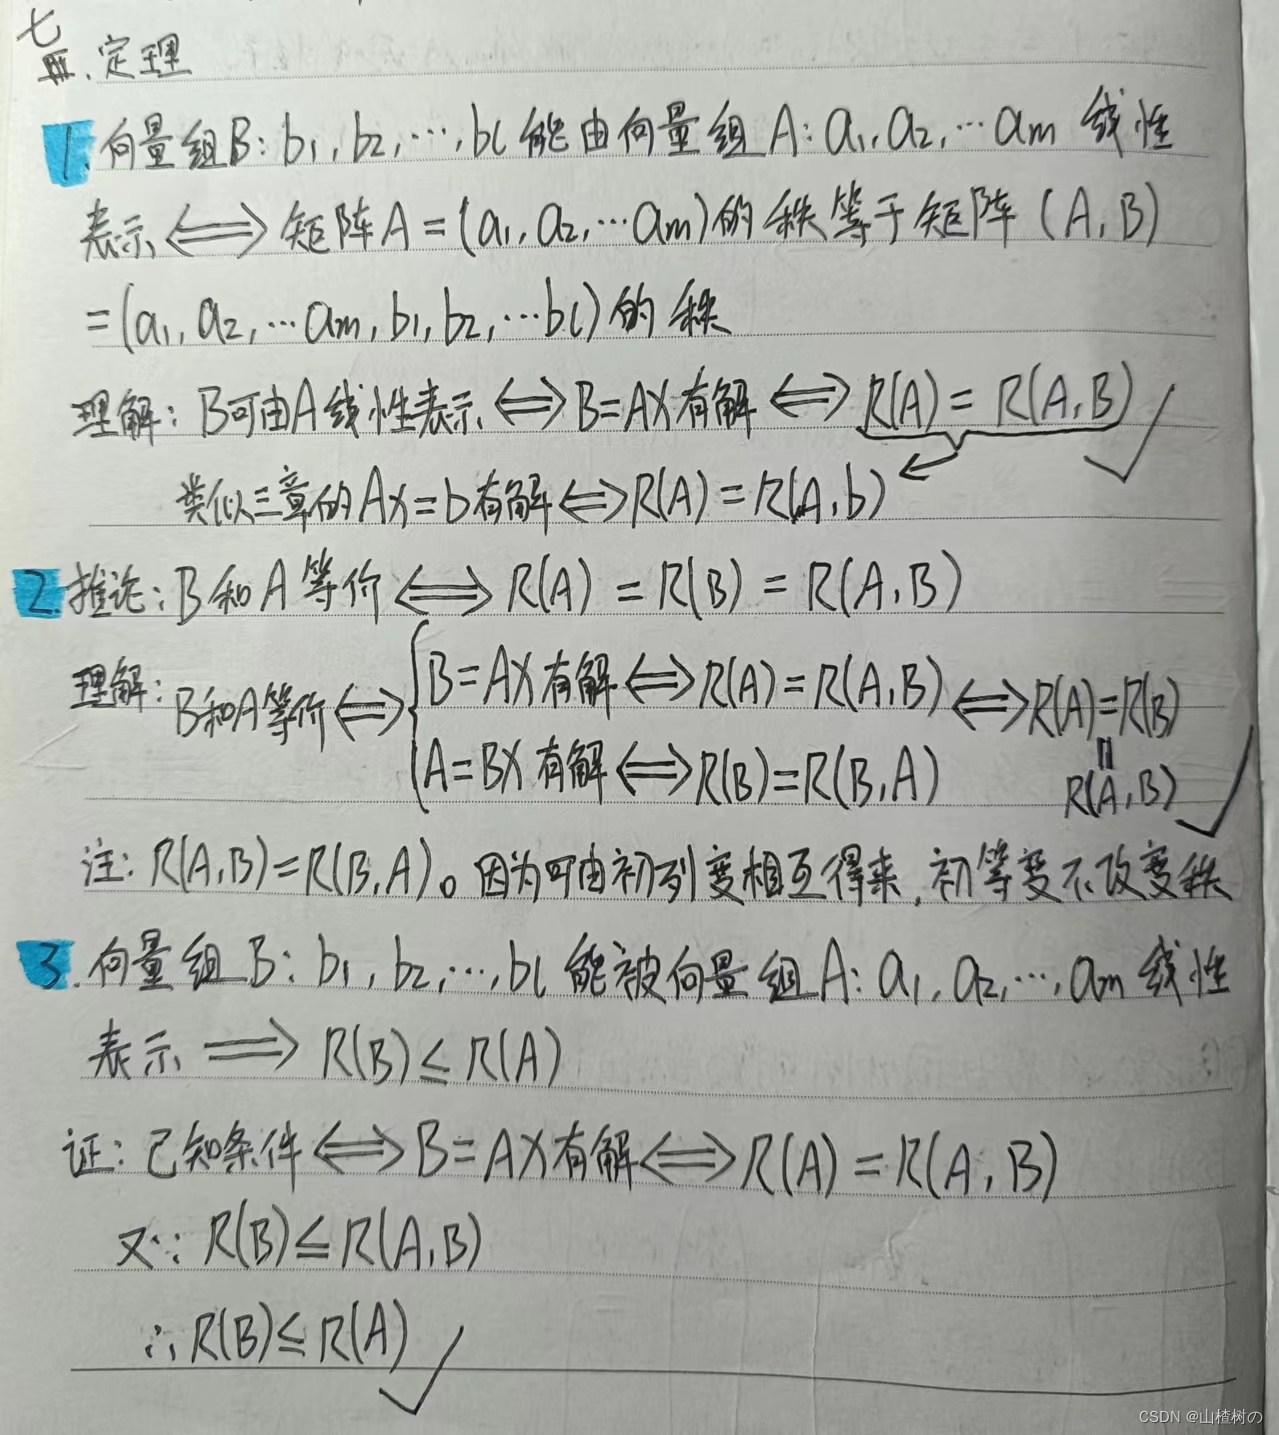 七
四、定理
1. 向量组B: b1, b2, ⋯, bl 能由向量组A: a1, a2, ⋯ am 线性
表示 ⟺ 矩阵A = (a1, a2, ⋯ am) 的秩等于矩阵 (A, B)
= (a1, a2, ⋯ am, b1, b2, ⋯ bl) 的秩
理解: B可由A线性表示 ⟺ B=AX有解 ⟺ R(A) = R(A,B) ✓
类似三章的AX=b有解 ⟺ R(A) = R(A,b)
2. 推论: B和A等价 ⟺ R(A) = R(B) = R(A,B)
理解: B和A等价 ⟺ { B=AX有解 ⟺ R(A) = R(A,B) ⟺ R(A)=R(B)
A=BX有解 ⟺ R(B)=R(B,A) = R(A,B) ✓
注: R(A,B)=R(B,A)。因为可由初列变相互得来, 初等变不改变秩
3. 向量组B: b1, b2, ⋯, bl 能被向量组A: a1, a2, ⋯, am 线性
表示 ⟹ R(B) ≤ R(A)
证: 已知条件 ⟺ B=AX有解 ⟺ R(A) = R(A,B)
又∵ R(B) ≤ R(A,B)
∴ R(B) ≤ R(A) ✓
CSDN @山楂树の